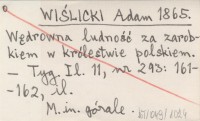 WIŚLICKI Adam 1865.
Wędrowna ludność za zarob-
kiem w królestwie polskiem.
— Tyg. Il. 11, nr 293: 161-
-162, il.
M.in. górale.